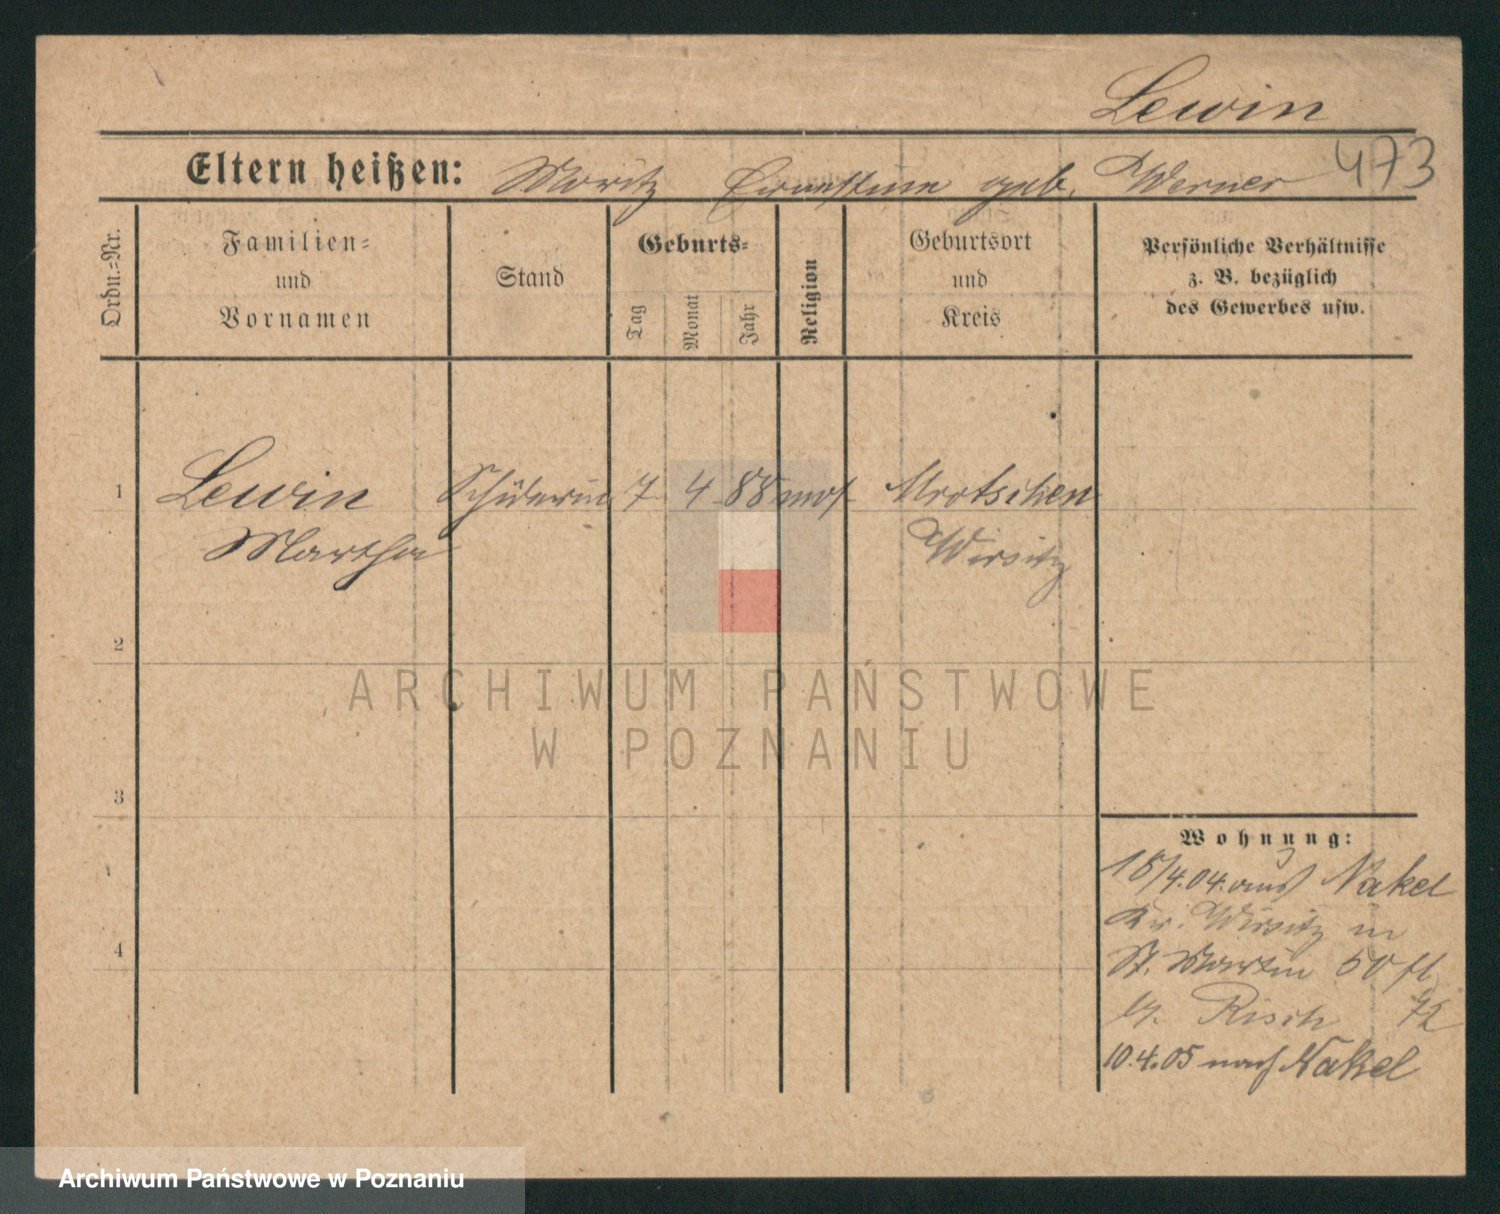 Lewin
473
Eltern heißen: Moritz Ernestine geb. Werner
Ordn.=Nr.
Familien=
und
Vornamen
Stand
Geburts=
Tag
Monat
Jahr
Religion
Geburtsort
und
Kreis
Persönliche Verhältnisse
z. B. bezüglich
des Gewerbes usw.
1 Lewin Schülerin 7 4 88 mos Mrotschen
Martha Wirsitz
2
3
4
Wohnung:
15/4.04. aus Nakel
Kr. Wirsitz in
St. Martin
Risch
10.4.05 nach Nakel
ARCHIWUM PAŃSTWOWE
W POZNANIU
Archiwum Państwowe w Poznaniu